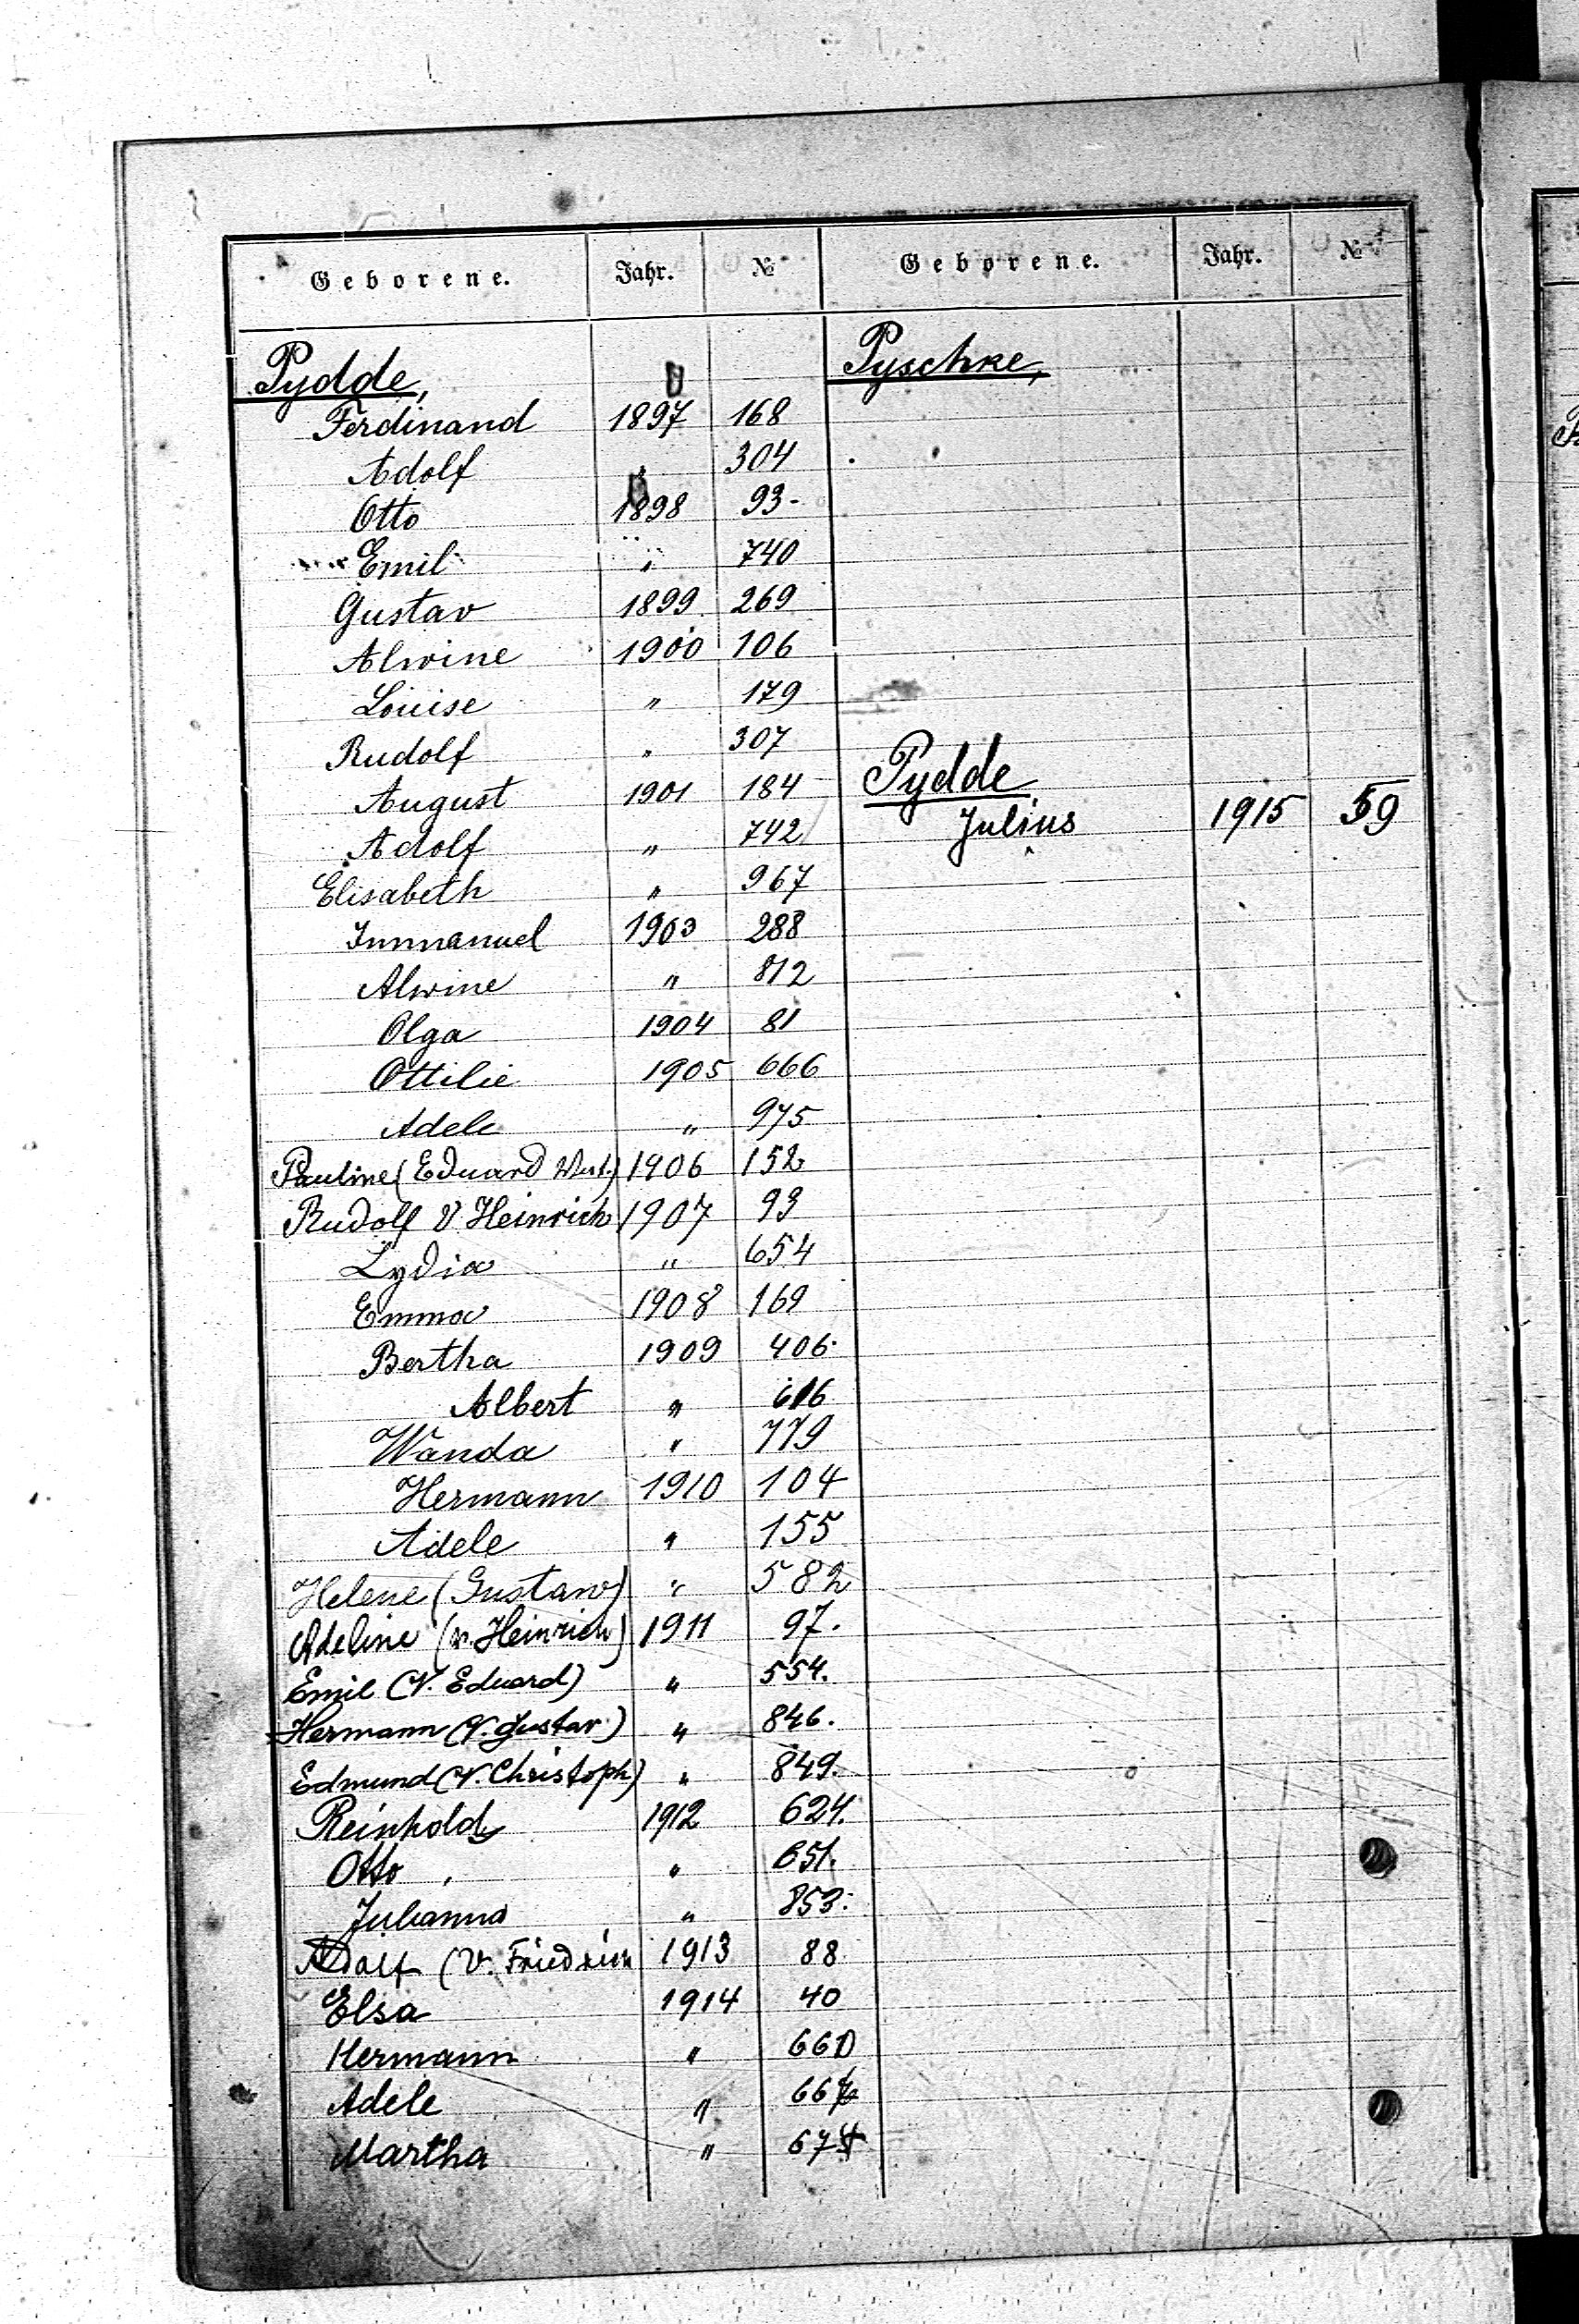 Geborene. Jahr. № Geborene. Jahr. №
Pydde,
Ferdinand 1897 168
Adolf " 304
Otto 1898 93-
Emil " 740
Gustav 1899 269
Alwine 1900 106
Louise " 179
Rudolf " 307
August 1901 184
Adolf " 742
Elisabeth " 967
Immanuel 1903 288
Alwine " 812
Olga 1904 81
Ottilie 1905 666
Adele " 975
Pauline (Eduard 1906 152
Rudolf V Heinrich 1907 93
Lydia " 654
Emma 1908 169
Bertha 1909 406.
Albert " 616
Wanda " 779
Hermann 1910 104
Adele " 155
Helene (Gustaw) " 582
Adeline (v. Heinrich) 1911 97.
Emil (V. Eduard) " 554.
Hermann (V. Gustav.) " 846.
Edmund (V. Christoph) " 849.
Reinhold 1912 624.
Otto, " 651.
Julianna " 853.
Adolf (V. Friedrich 1913 88
Elsa 1914 40
Hermann " 660
Adele "
Martha "
Pyschke,
Pydde
Julius 1915 59